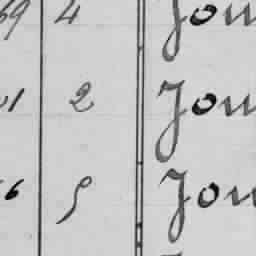 69 4 Jou
1 2 Jou
6 5 Jou